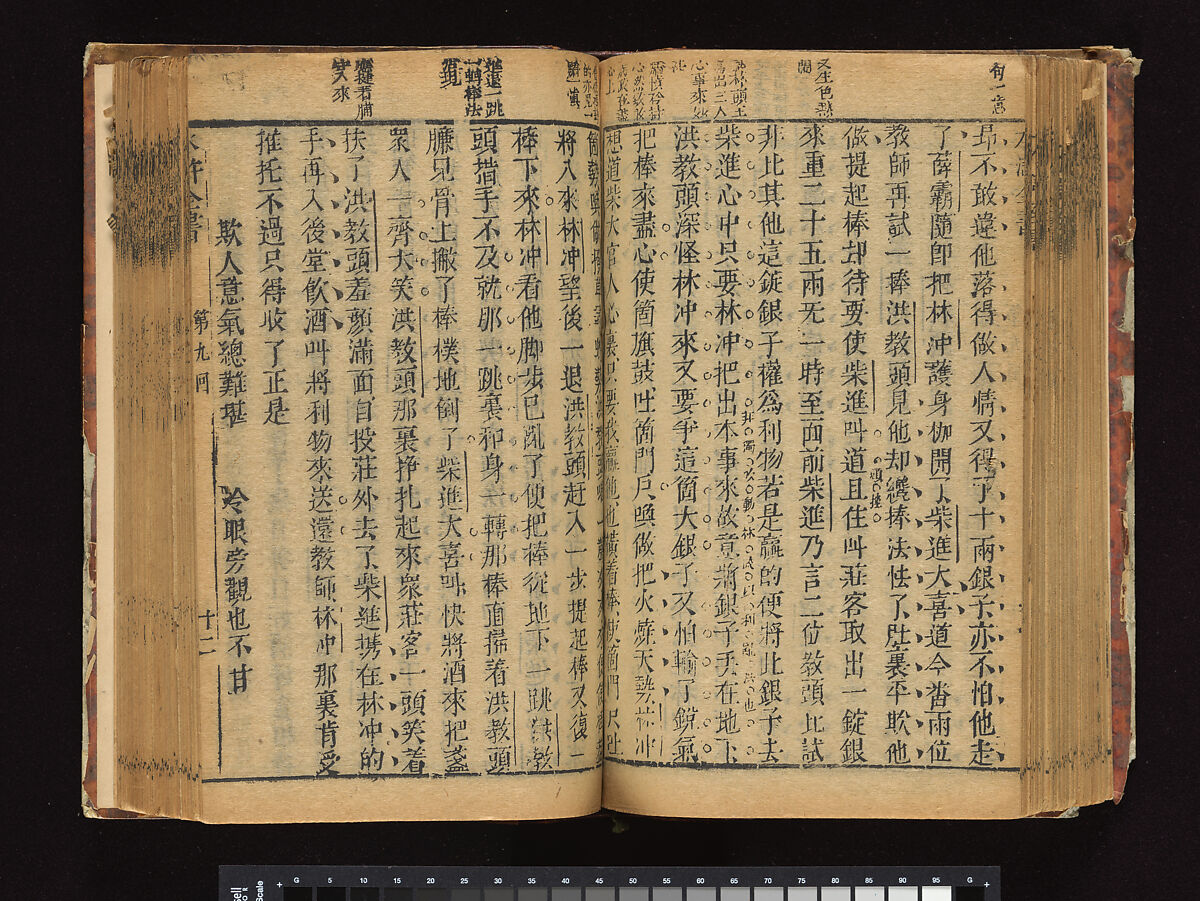 句一憲
又生色點
昻不敢違他落得做人情又得了十兩銀子亦不怕他走
了薛霸隨即把林冲護身枷開了柴進大喜道今畨兩位
教師再試一棒洪教頭見他却纔棒法怯了肚裏平欺他
做提起棒却待要使柴進叫道且住叫莊客取出一錠銀
來重二十五兩无一時至面前柴進乃言二位教頭比試
非比其他這錠銀子權爲利物若是贏的便將此銀子去
柴進心中只要林冲把出本事來故意將銀子丟在地下
洪教頭深怪林冲來又要爭這箇大銀子又怕輸了銳氣
把棒來盡心使箇旗鼓吐箇門戶喚做把火燒天勢林冲
想道柴大官人心裏只要我贏他也橫着棒使箇門戶吐
將入來林冲望後一退洪教頭赶入一步提起棒又復一
棒下來林冲看他脚步已亂了便把棒從地下一跳洪教
頭措手不及就那一跳裏和身一轉那棒直掃着洪教頭
臁兒骨上撇了棒撲地倒了柴進大喜呌快將酒來把盞
衆人一齊大笑洪教頭那裏挣扎起來衆莊客一頭笑着
扶了洪教頭羞顔滿面自投莊外去了柴進携在林冲的
手再入後堂飮酒叫將利物來送還教師林冲那裏肯受
推托不過只得收了正是
欺人意氣總難堪　冷眼旁觀也不甘
水滸全書　第九回　十二